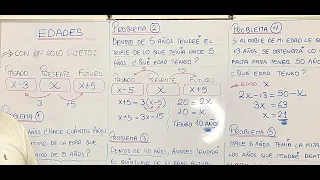 EDADES
→ CON UN SOLO SUJETO:
PASADO PRESENTE FUTURO
x-3 x x+5
3 +5
PROBLEMA 1
AÑOS ¿HACE CUÁNTOS AÑOS
DE LA EDAD QUE
DE 5 AÑOS?
PROBLEMA 2
DENTRO DE 5 AÑOS TENDRÉ EL
TRIPLE DE LO QUE TENÍA HACE 5
AÑOS. ¿QUÉ EDAD TENGO?
PASADO PRESENTE FUTURO
x-5 x x+5
x+5 = 3(x-5)
x+5 = 3x-15
20 = 2x
10 = x
TENGO 10 AÑOS
PROBLEMA 3
DENTRO DE 40 AÑOS, ANDRÉS TENDRÁ
EL QUÍNTUPLE DE SU EDAD ACTUAL
PROBLEMA 4
AL DOBLE DE MI EDAD LE
13 AÑOS SE OBTENDRÁ LO
FALTA PARA TENER 50 AÑO
¿QUÉ EDAD TENGO?
EDAD: x
2x-13 = 50-x
3x = 63
x = 21
PROBLEMA 5
HACE 6 AÑOS TENÍA LA MITA
LOS AÑOS QUE TENDRÉ DENT